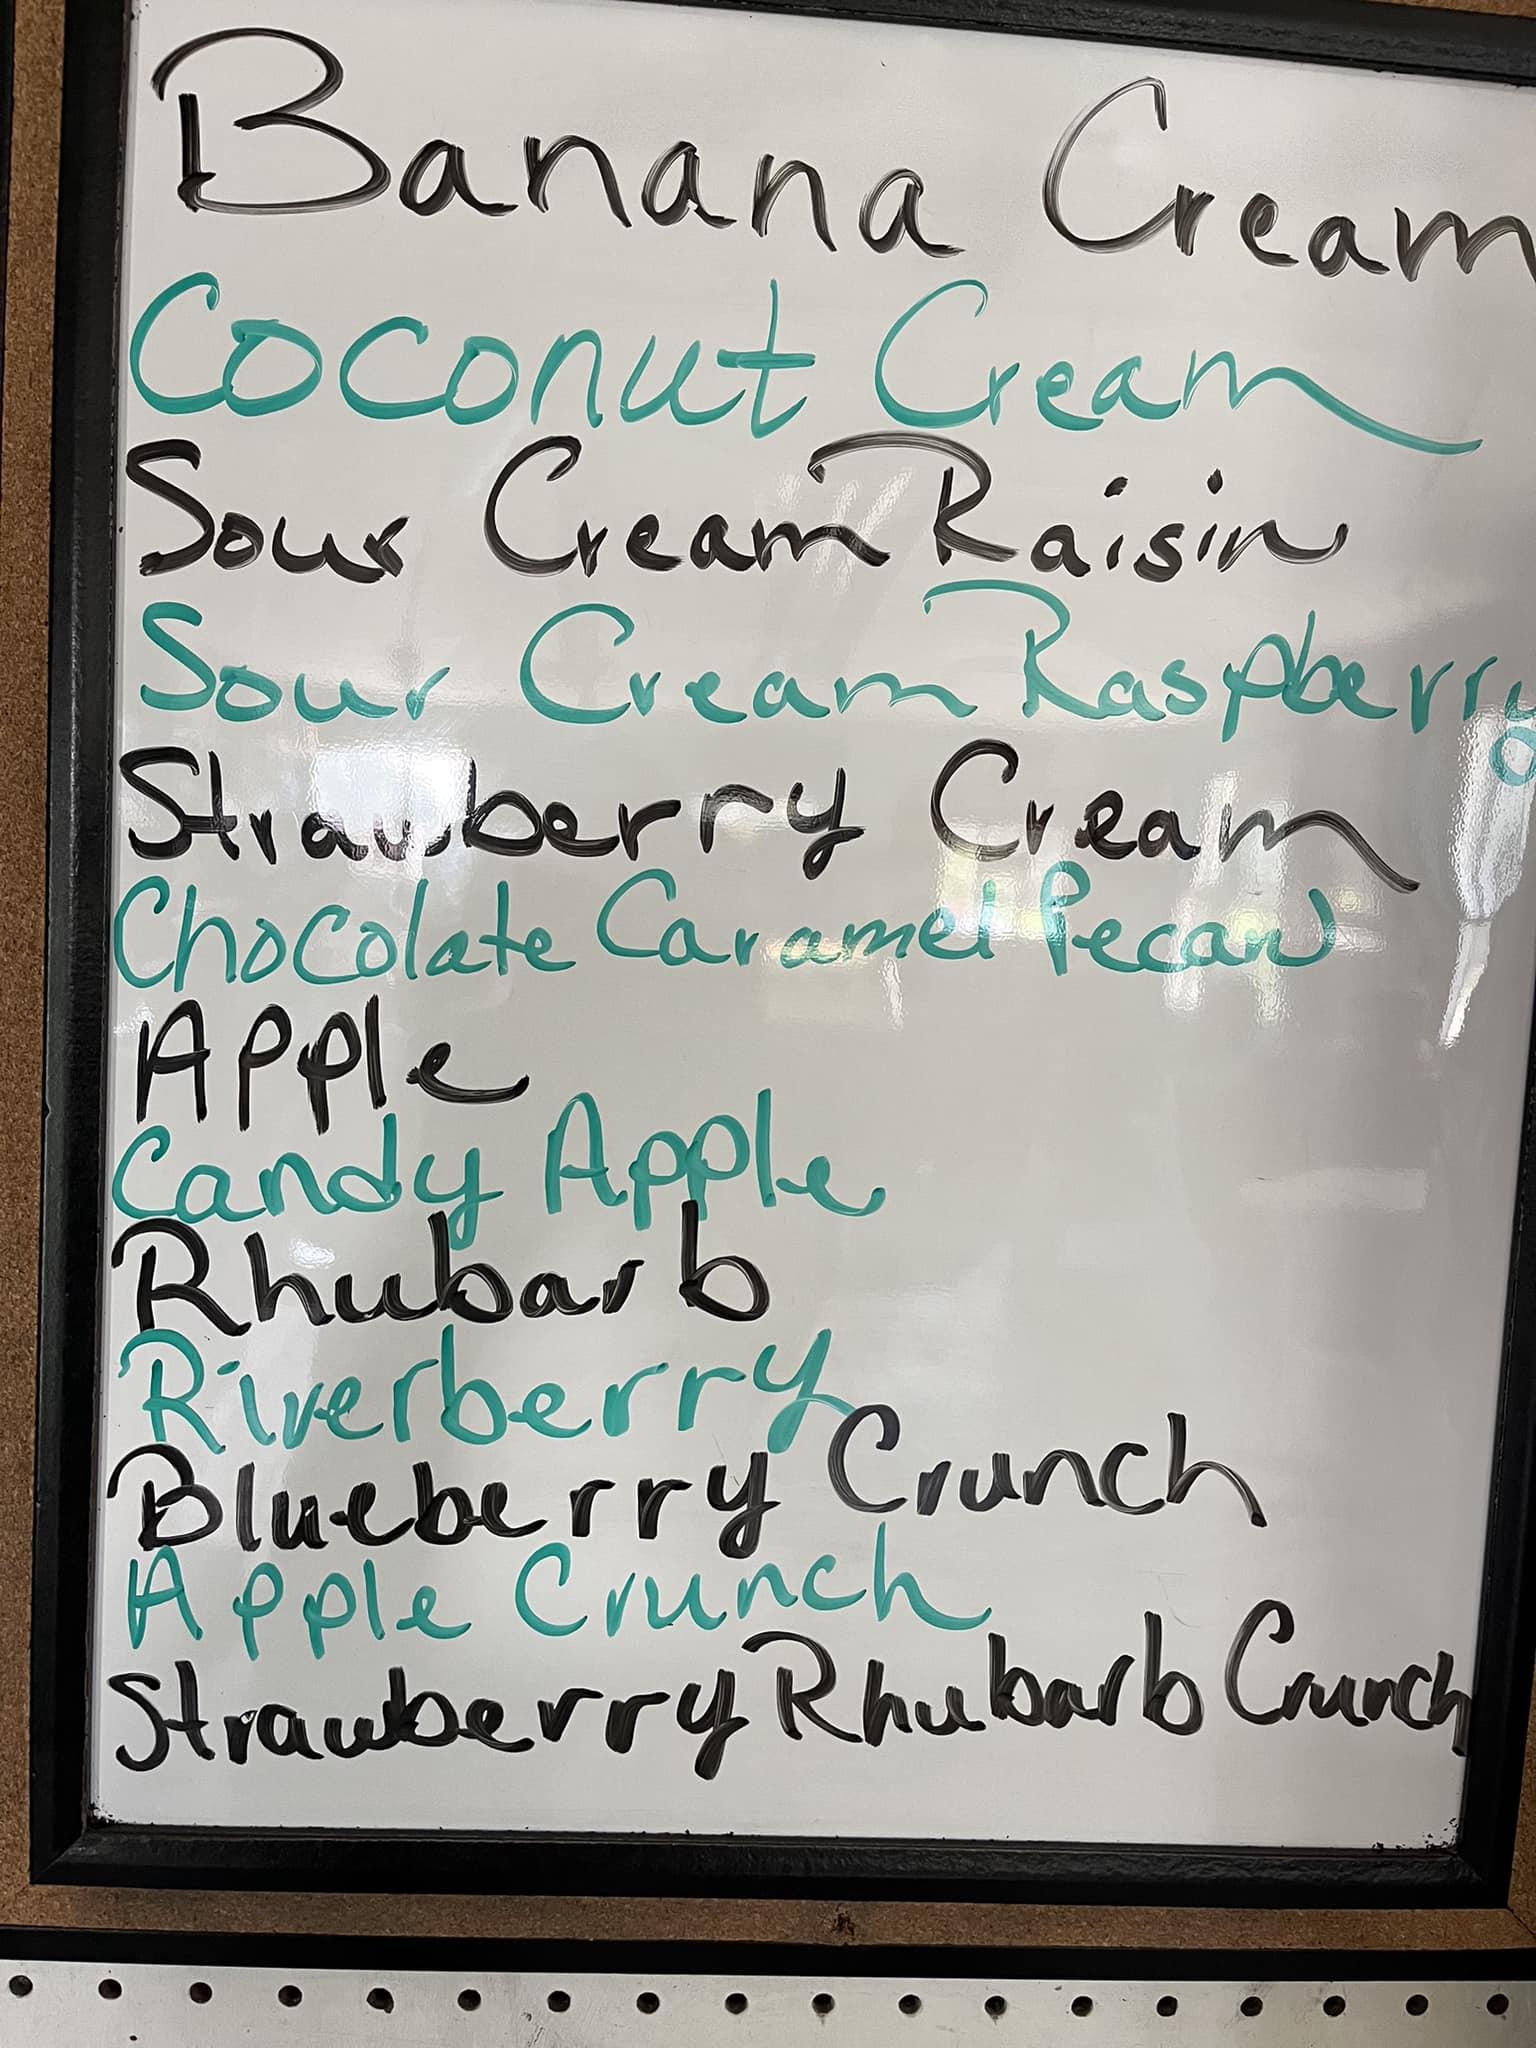 Banana Cream
Coconut Cream
Sour Cream Raisin
Sour Cream Raspberry
Strawberry Cream
Chocolate Caramel Pecan
Apple
Candy Apple
Rhubarb
Riverberry
Blueberry Crunch
Apple Crunch
Strawberry Rhubarb Crunch